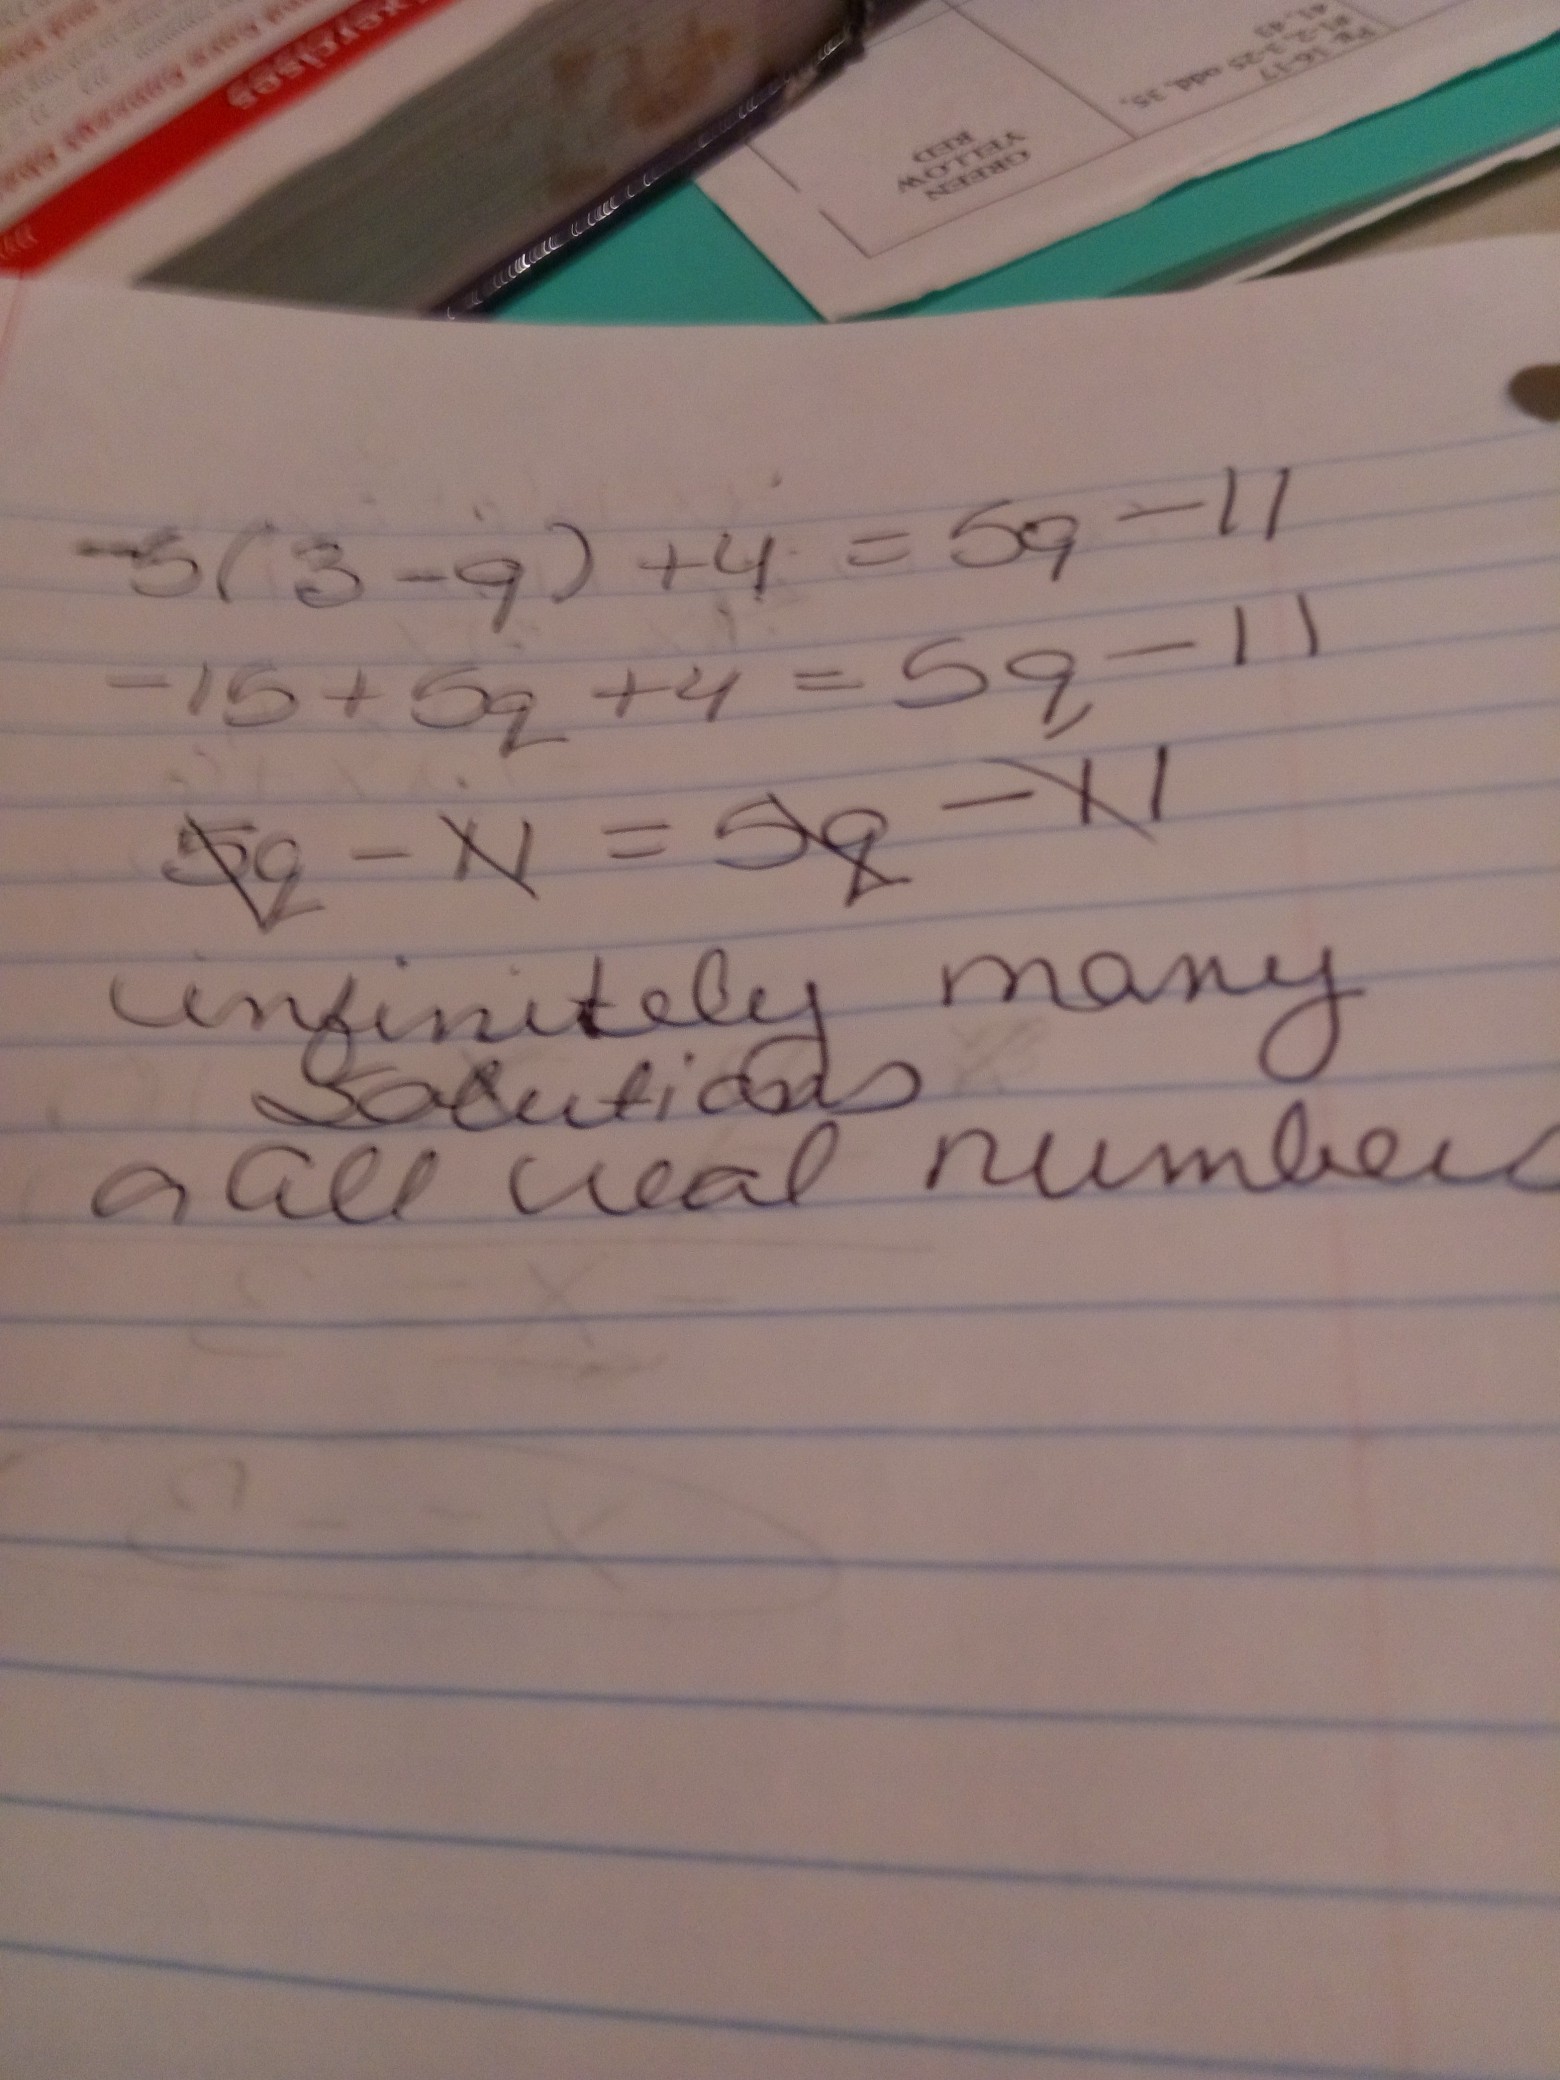 xercises
Pg. 16-17
#1-2, 3-25 odd, 35,
41, 43
GREEN
YELLOW
RED
-5(3-q) +4 = 5q -11
-15 + 5q +4 = 5q -11
5q - 11 = 5q - 11
infinitely many
Solutions
or all real numbers